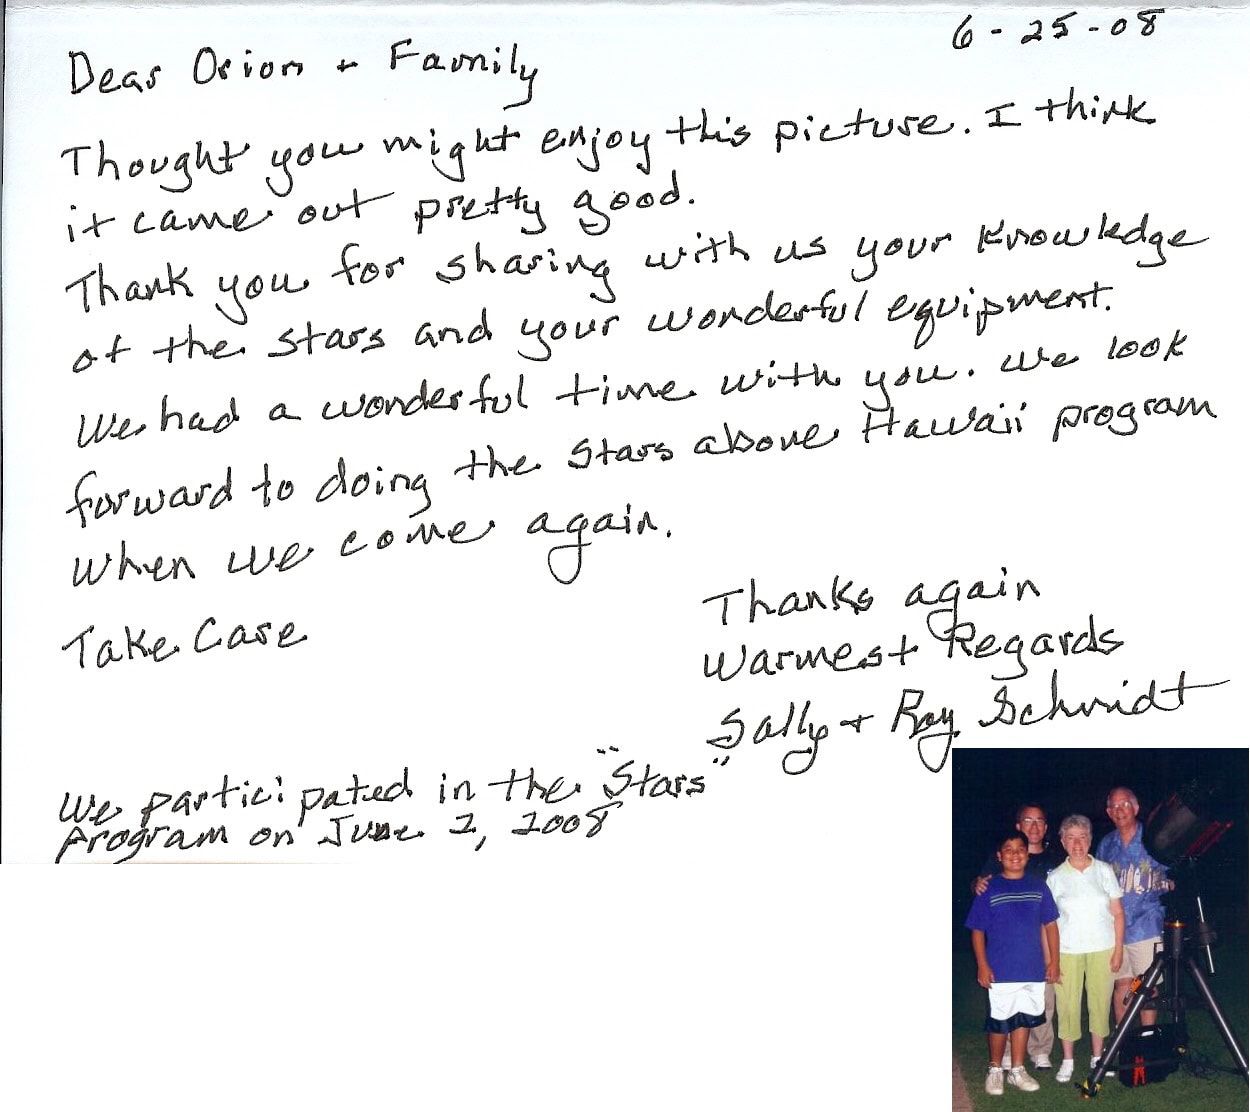 6-25-08
Dear Orion + Family
Thought you might enjoy this picture. I think
it came out pretty good.
Thank you for sharing with us your Knowledge
of the stars and your wonderful equipment.
We had a wonderful time with you. We look
forward to doing the Stars above Hawaii program
when we come again.
Take Care
Thanks again
Warmest Regards
Sally + Roy Schmidt
We participated in the "Stars"
program on June 2, 2008